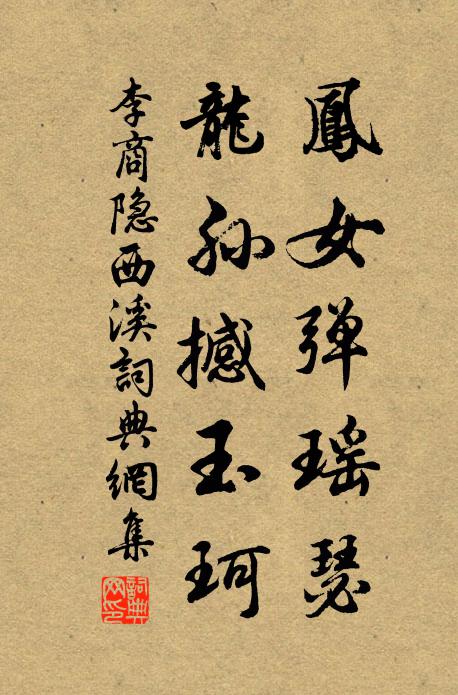 鳳女弹瑶瑟
龍孙撼玉珂
李商隐西溪詞典網集
詞典网印